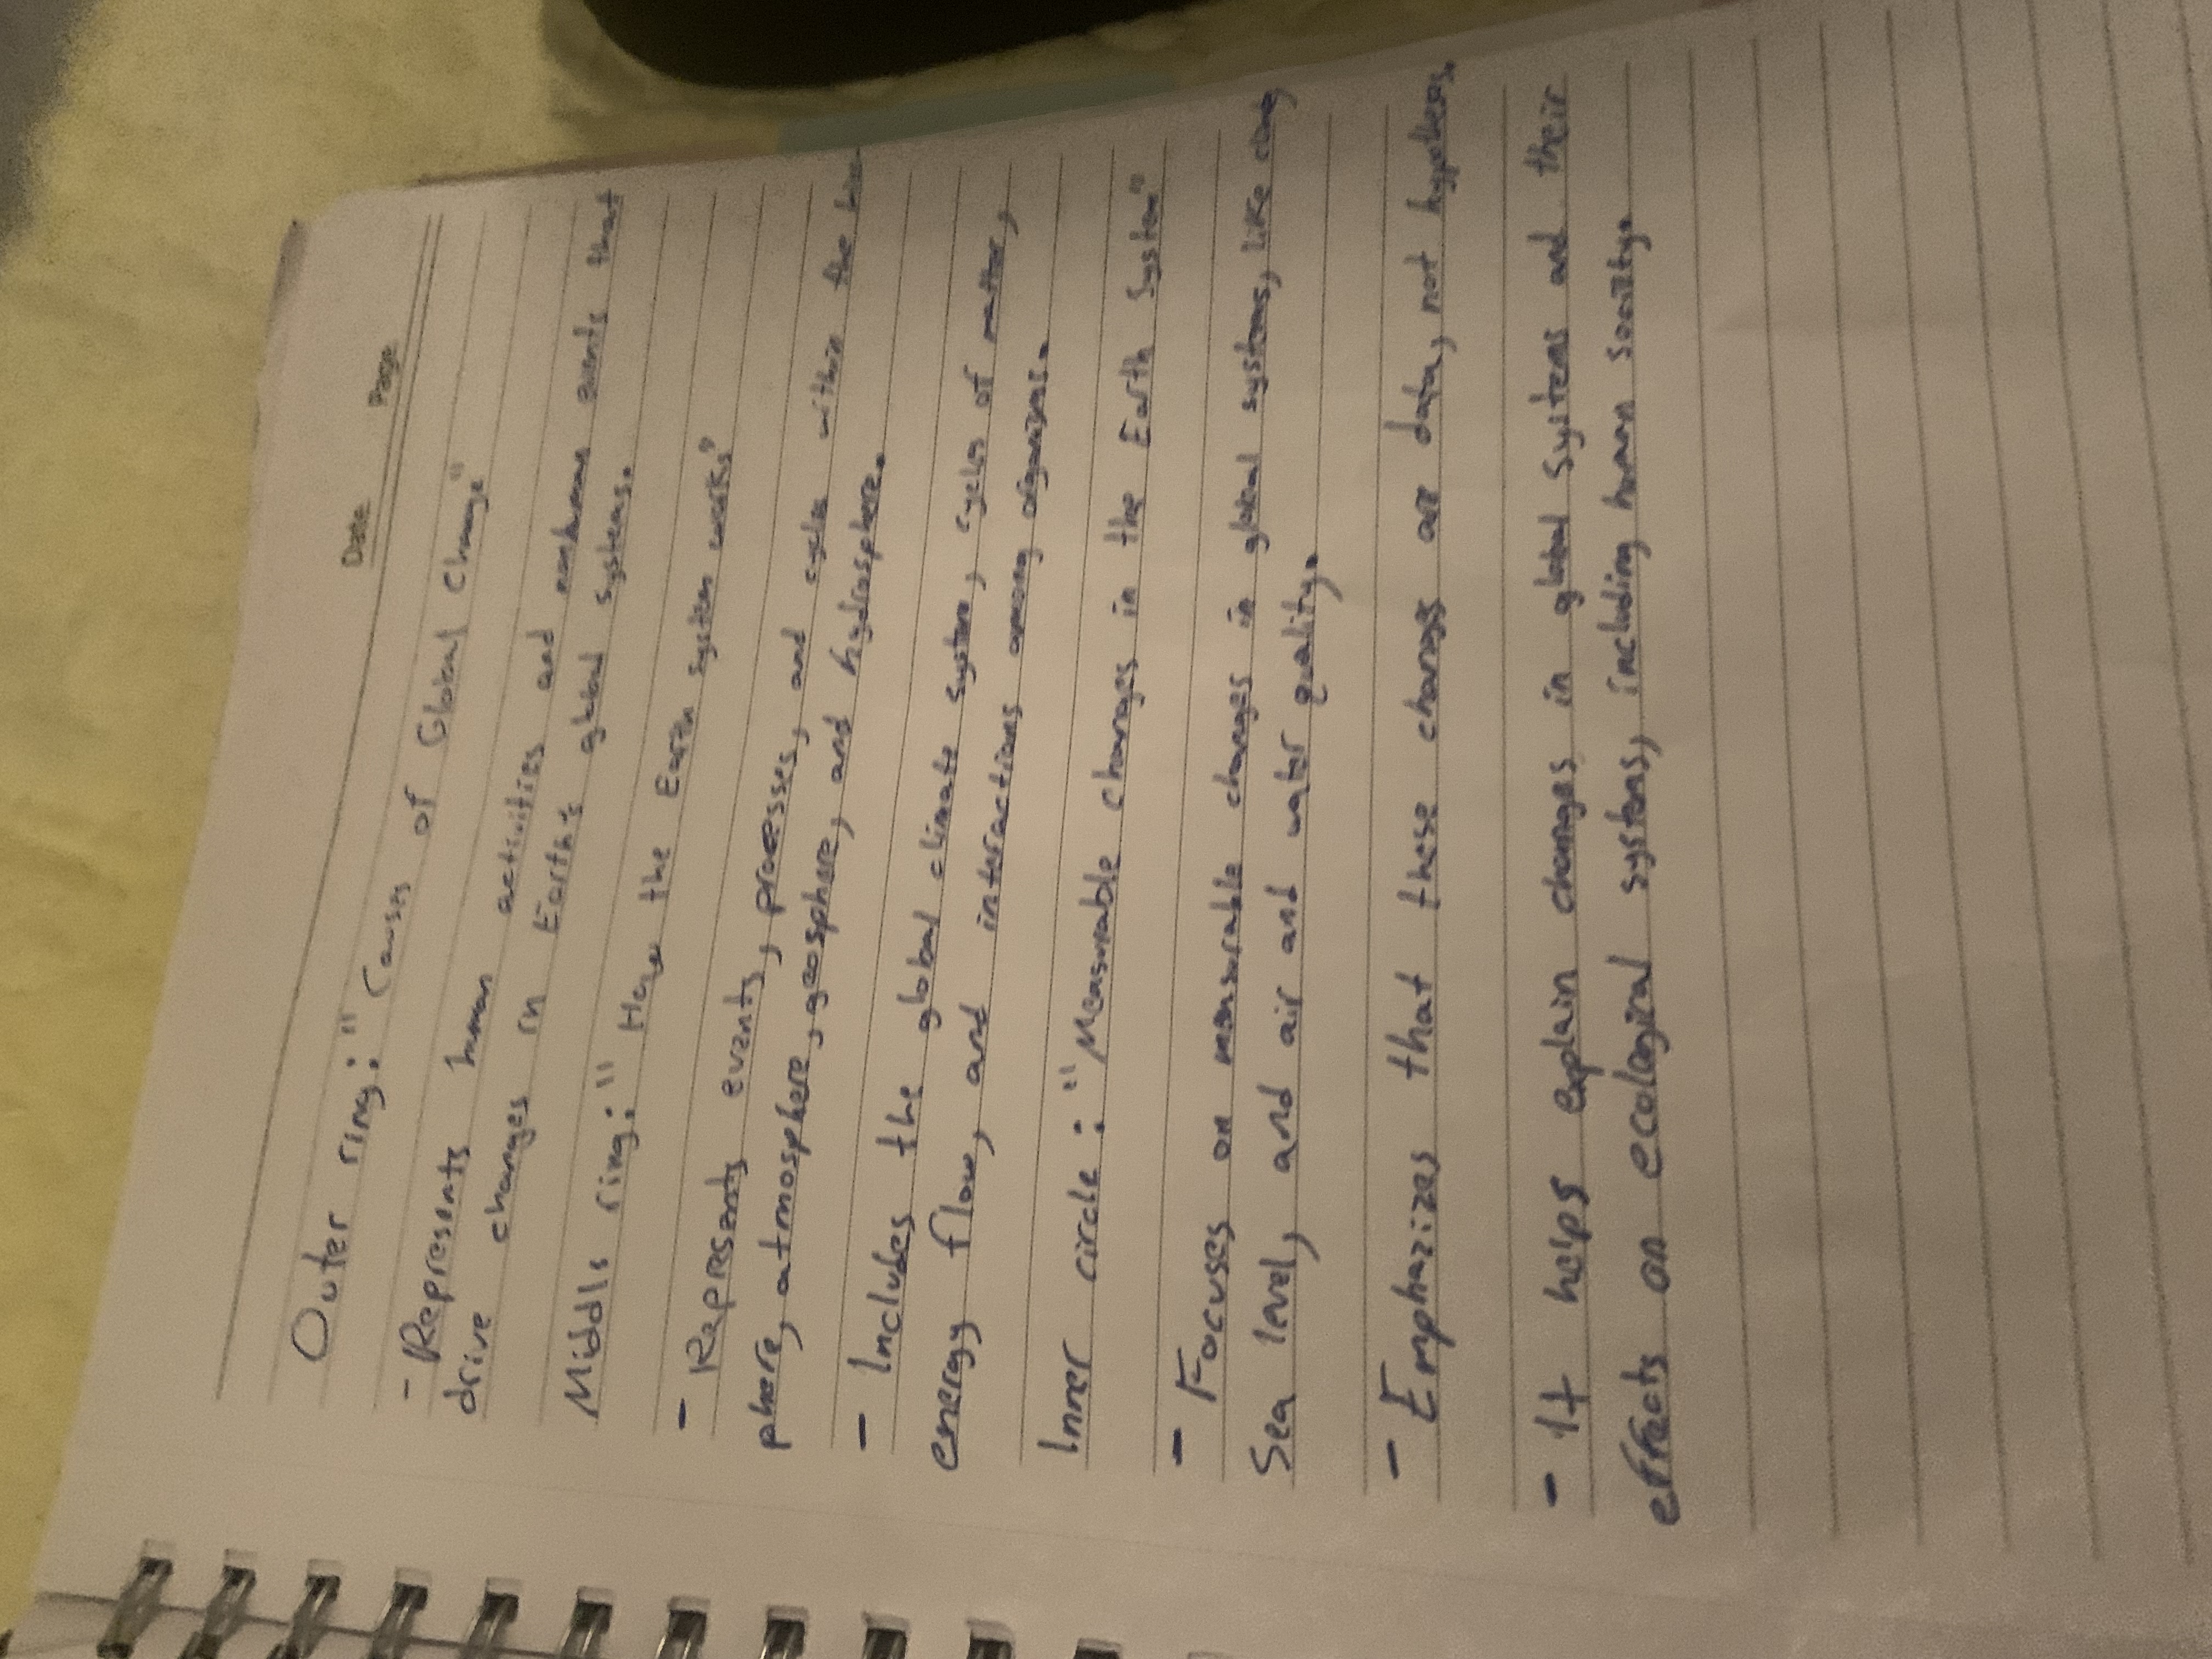 Date Page
Outer ring: "Causes of Global Change"
- Represents human activities and nonhuman events that
drive changes in Earth's global systems.
Middle ring: "How the Earth system works"
- Represents events, processes, and cycles within the bios-
phere, atmosphere, geosphere, and hydrosphere.
- Includes the global climate system, cycles of matter,
energy flow, and interactions among organisms.
Inner circle: "Measurable changes in the Earth System"
- Focuses on measurable changes in global systems, like
Sea level, and air and water quality.
- Emphazizes that these changes are data, not hypotheses.
- It helps explain changes in global systems and their
effects on ecological systems, including human society.